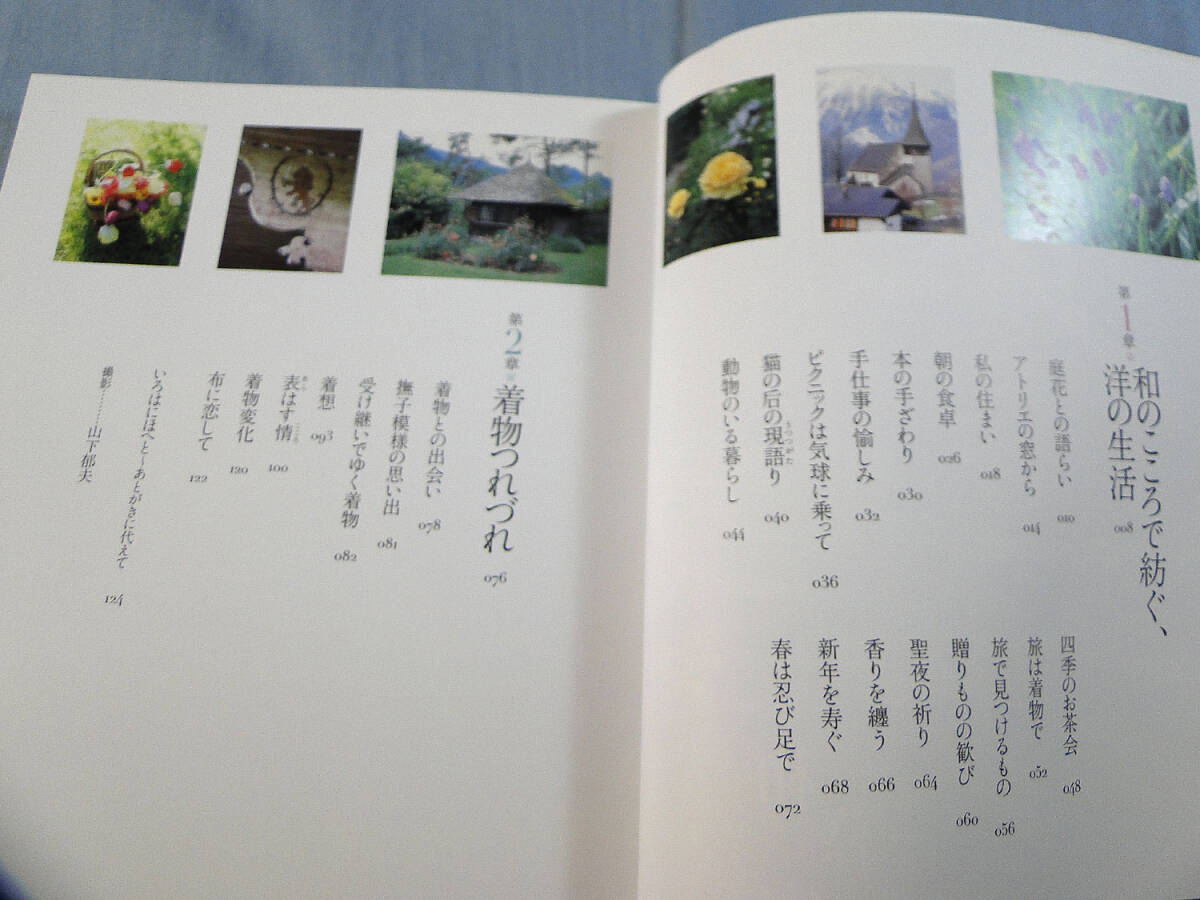 第1章
和のこころで紡ぐ、
洋の生活 008
庭花との語らい 010
アトリエの窓から 014
私の住まい 018
朝の食卓 026
本の手ざわり 030
手仕事の愉しみ 032
ピクニックは気球に乗って 036
猫の后の現語り 040
うつつがた
動物のいる暮らし 044
四季のお茶会 048
旅は着物で 052
旅で見つけるもの 056
贈りものの歓び 060
聖夜の祈り 064
香りを纏う 066
新年を寿ぐ 068
春は忍び足で 072
第2章
着物つれづれ 076
着物との出会い 078
撫子模様の思い出 081
受け継いでゆく着物 082
着想 093
表はす情 100
着物変化 120
布に恋して 122
いろはにほへと〜あとがきに代えて 124
撮影………山下郁夫